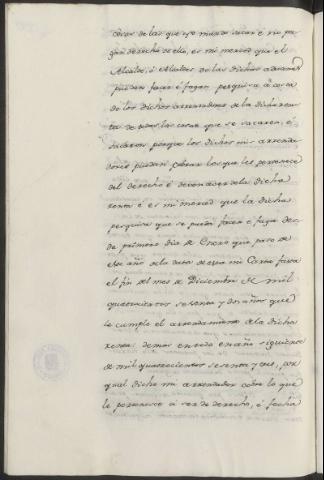 cosas de las que yo mando sacar é no pa-
gan derecho de ello, es mi merced que el
Alcalde, ó Alcaldes de las dichas aduanas
puedan facer é fagan pesquisa á costa
de los dichos arrendadores de la dicha ren-
ta de todas las cosas que se sacaren, é
sacaron porque los dichos mis arrenda-
dores puedan cobrar lo que les pertenece
del derecho é de la dicha
renta é es mi merced que la dicha
pesquisa que se pueda facer é faga des-
de primero dia de Enero que paso de
este año de la data de esta mi Carta fasta
el fin del mes de Diciembre de mil
quatrocientos sesenta y dos años que
se cumple el arrendamiento de la dicha
renta: demas en todo en año siguiente
de mil quatrocientos sesenta y tres, por
qual dicho mi arrendador cobre lo que
le pertenece á ver de derecho, é fecha